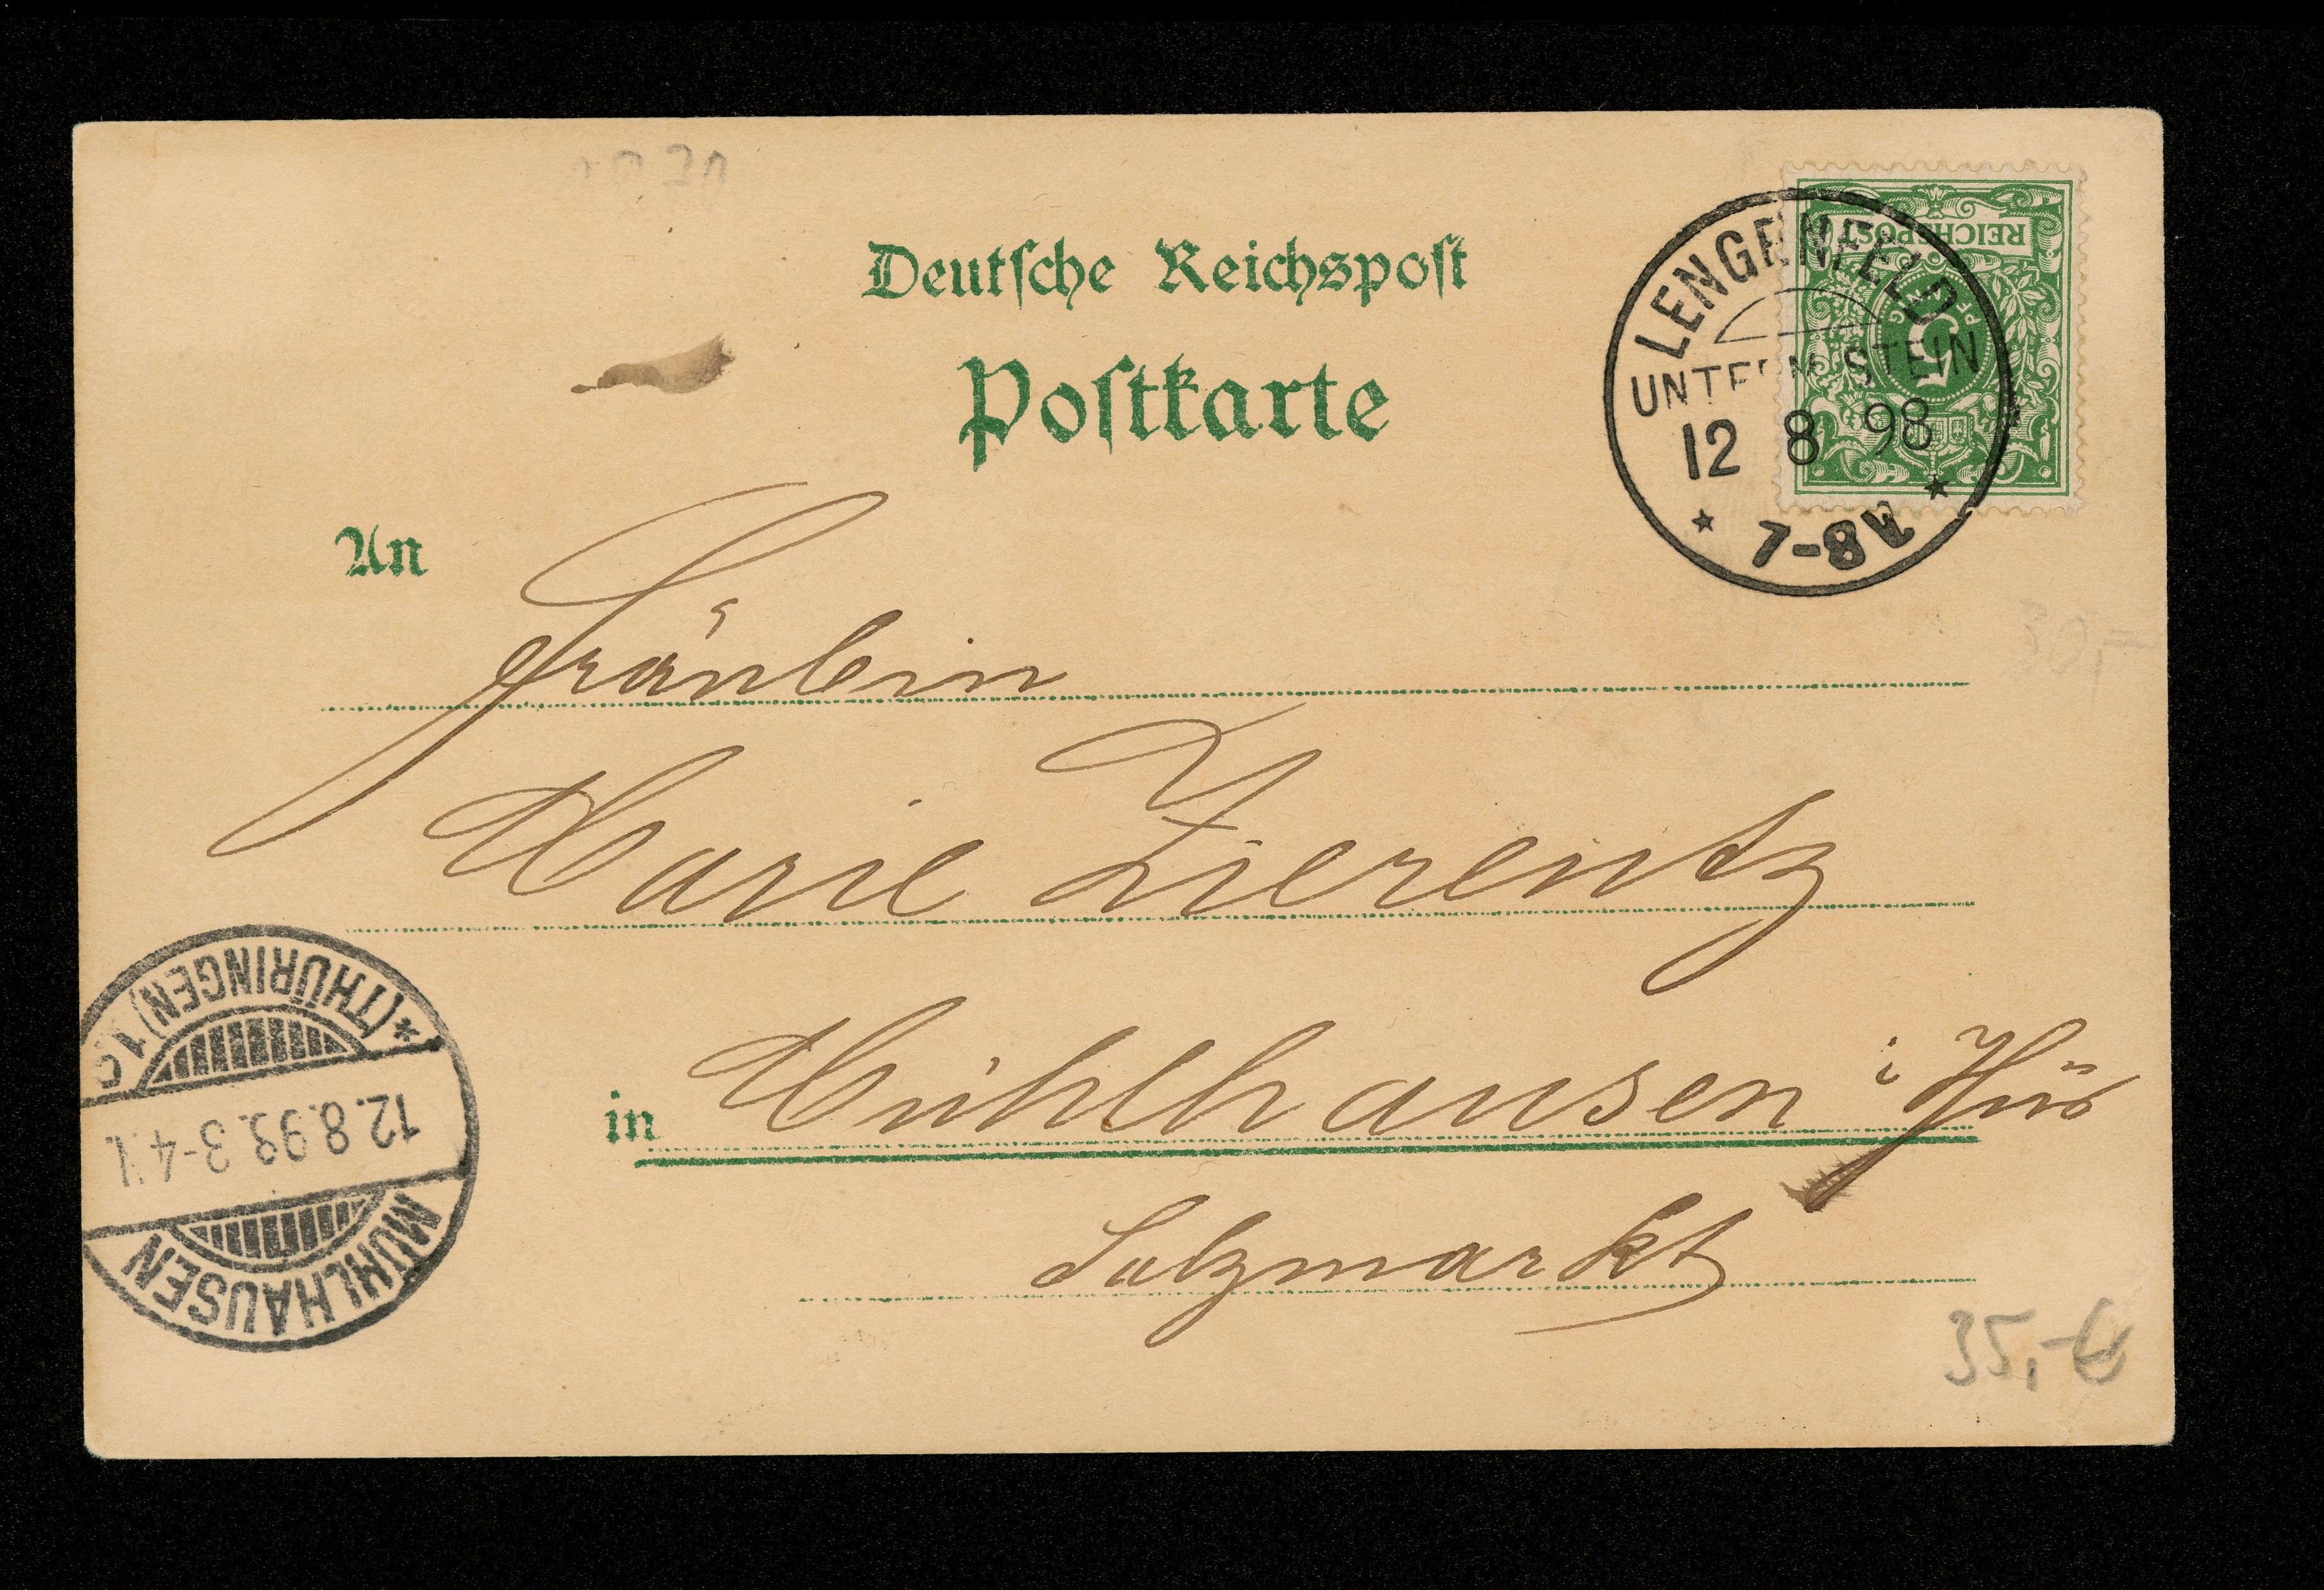 Deutſche Reichspoſt
Poſtkarte
REICHSPOST
5
PF
LENGENFELD
UNTERM STEIN
12 8 98
* 7-8V *
An
Fräulein
Marie Zierentz
in Mühlhausen i Thür
Salzmarkt
*(THÜRINGEN)1.
12.8.98. 3-4
MÜHLHAUSEN
30,-
35,-€